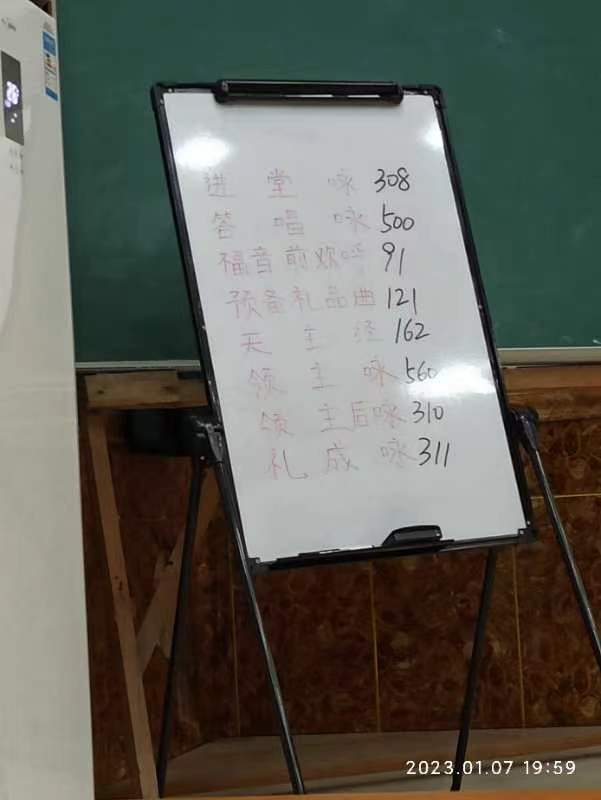 进堂咏 308
答唱咏 500
福音前欢呼 91
预备礼品曲 121
天主经 162
领主咏 560
领主后咏 310
礼成咏 311
2023.01.07 19:59